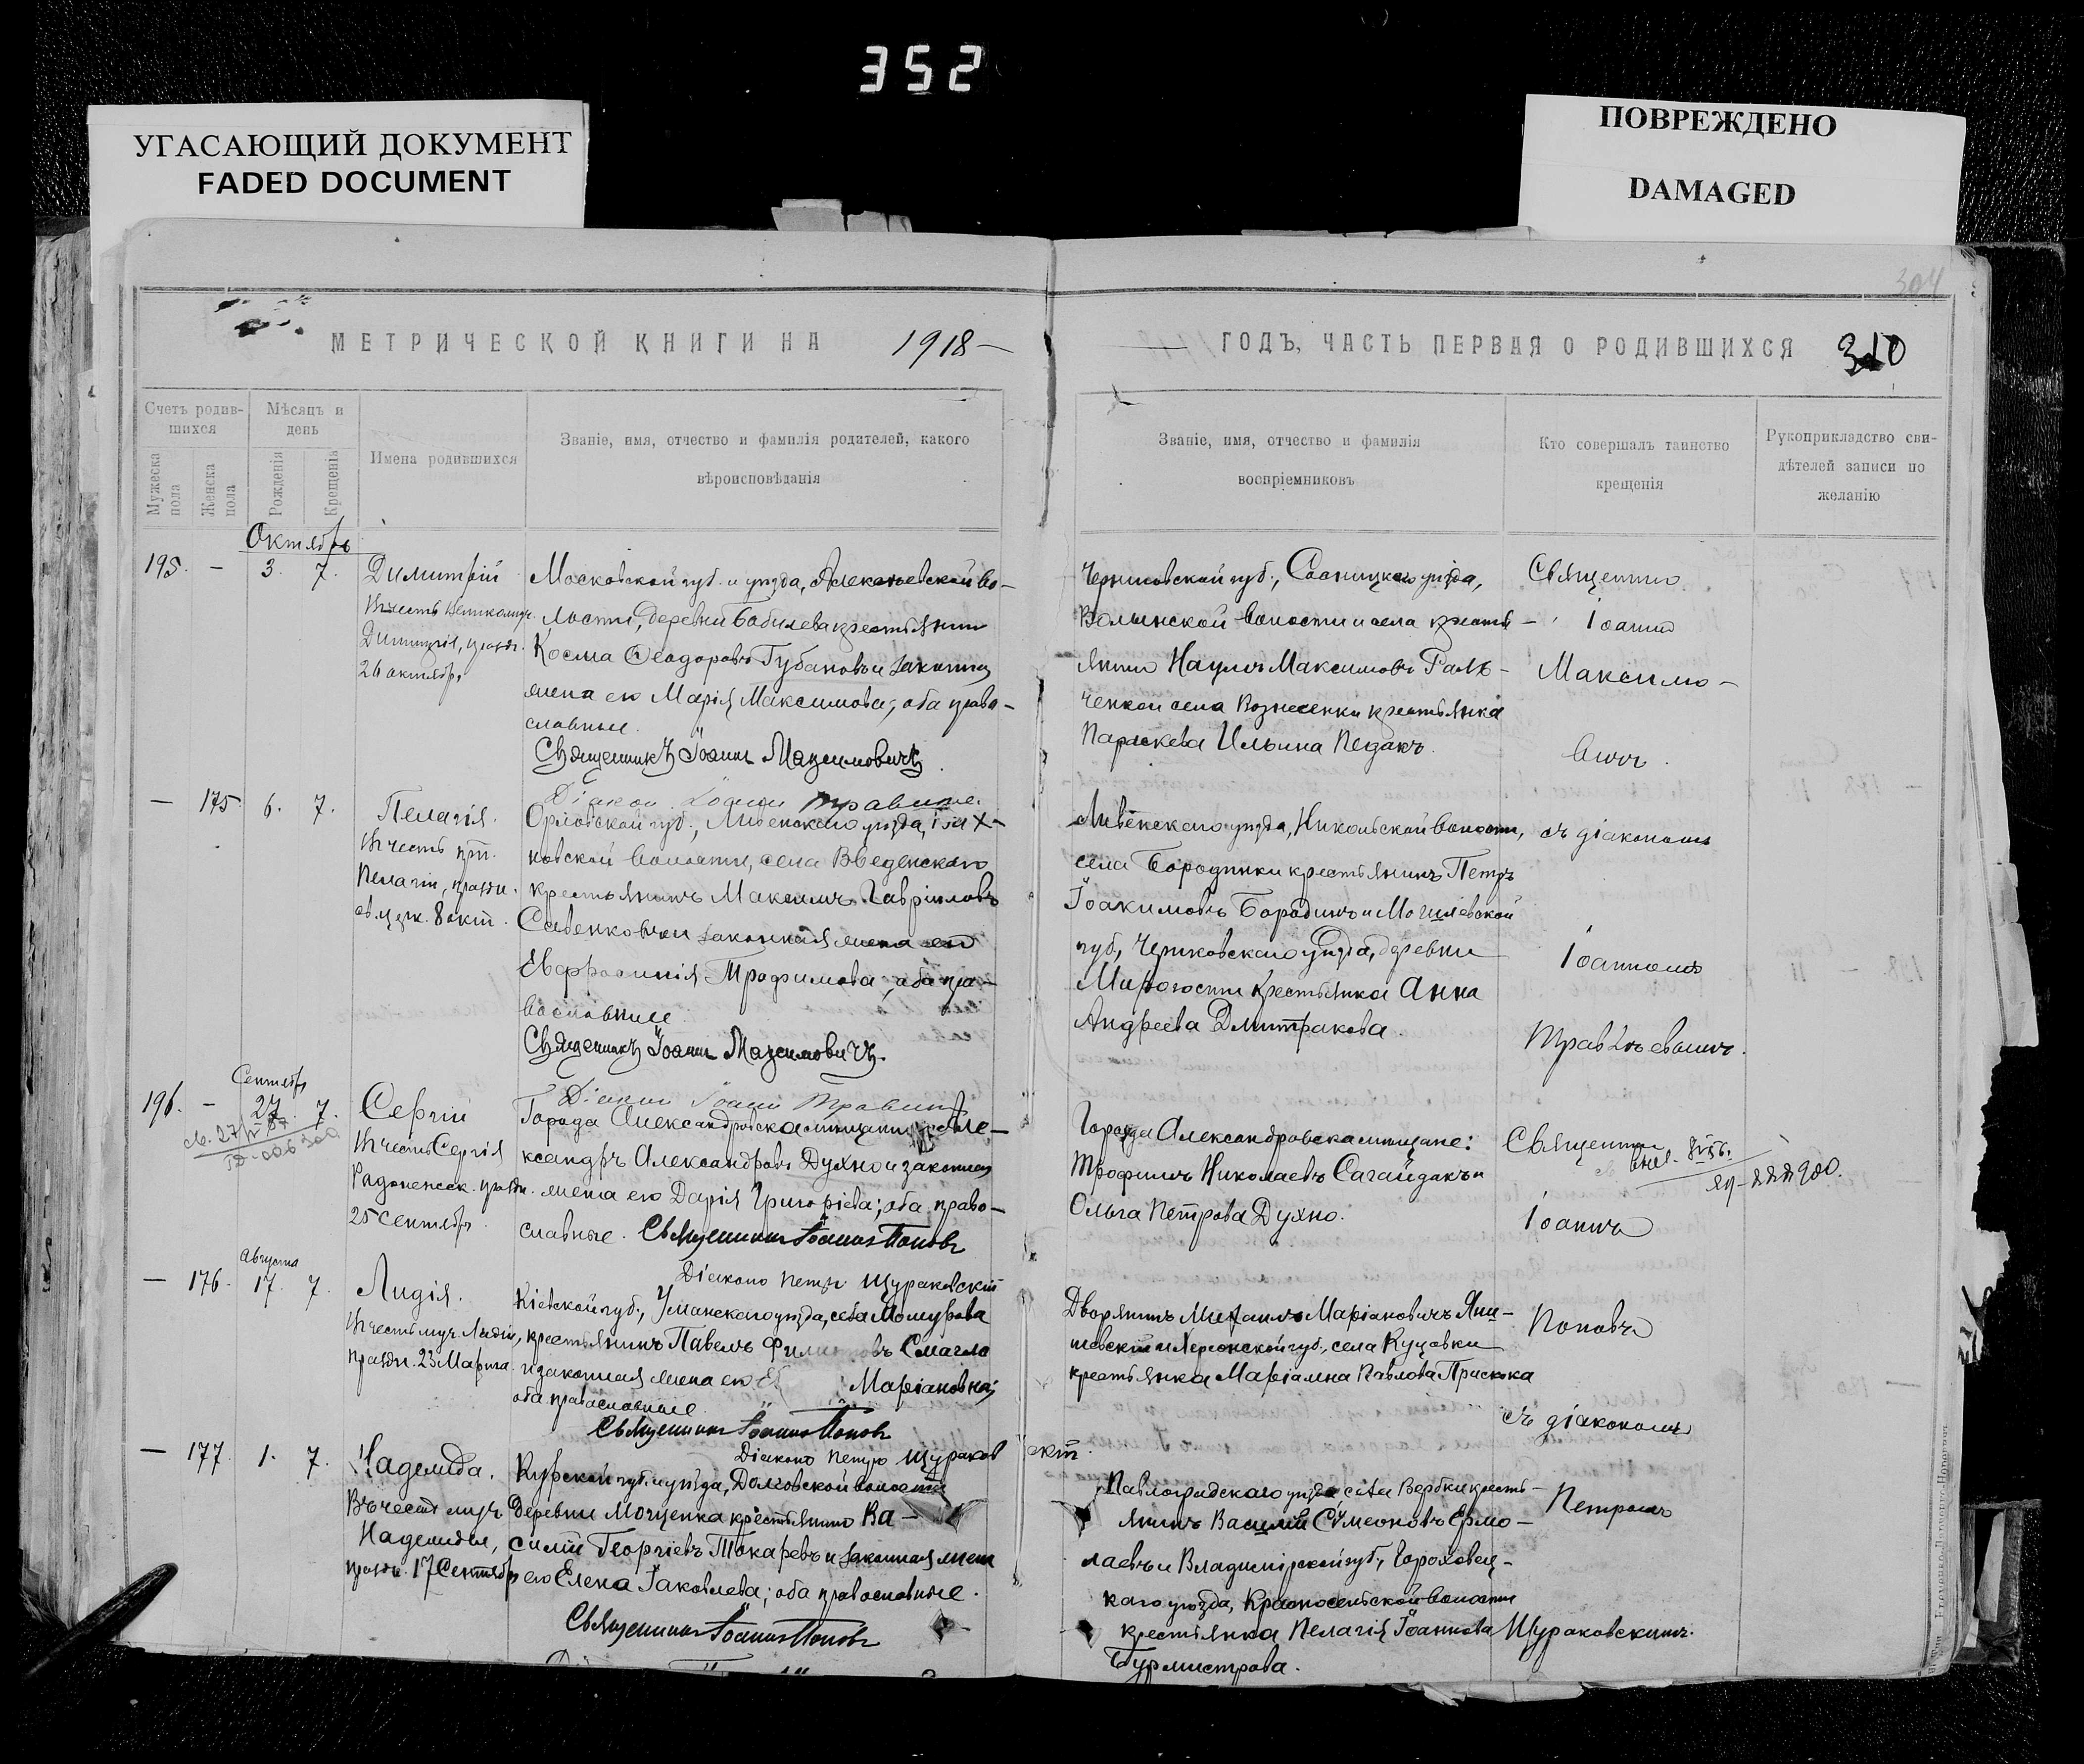 352
УГАСАЮЩИЙ ДОКУМЕНТ
FADED DOCUMENT
ПОВРЕЖДЕНО
DAMAGED
304
МЕТРИЧЕСКОЙ КНИГИ НА 1918 —
— ГОДЪ, ЧАСТЬ ПЕРВАЯ О РОДИВШИХСЯ 310
Счетъ родив-
шихся
Мужеска пола
Женска пола
Мѣсяцъ и
день
Рожденія
Крещенія
Имена родившихся
Званіе, имя, отчество и фамилія родителей, какого
вѣроисповѣданія
Званіе, имя, отчество и фамилія
воспріемниковъ
Кто совершалъ таинство
крещенія
Рукоприкладство сви-
дѣтелей записи по
желанію
Октябрь
195. — 3. 7.
Димитрій
Въ честь Великомуч.
Димитрія, праздн.
26 октября
Московской губ. и уѣзда, во-
лости, деревни Бобылева крестьянинъ
Косма Ѳеодоровъ Губановъ и законная
жена его Марія Максимова; оба право-
славные.
Священникъ Іоаннъ Максимовичъ.
Діакон Іоанн
Черниговской губ., Сосницкаго уѣзда,
Волынской волости и села кресть-
янинъ Наумъ Максимовъ Галь-
ченко и села Вознесенки крестьянка
Параскева Ильина Педакъ.
Священникъ
Іоаннъ
Максимо-
вичъ.
— 175. 6. 7.
Пелагія.
Въ честь прп.
Пелагіи, праздн.
св. церк. 8 окт.
Орловской губ., Ливенскаго уѣзда,
новской волости, села Введенскаго
крестьянинъ Максимъ Гавріиловъ
Савенковъ и законная жена его
Евфросинія Трофимова; оба пра-
вославные.
Священникъ Іоаннъ Максимовичъ.
Діакон Іоанн
Ливенскаго уѣзда, Никольской волости,
села Бородинки крестьянинъ Петръ
Іоакимовъ Бородинъ и Могилевской
губ., Чериковскаго уѣзда, деревни
Мирогости крестьянка Анна
Андреева Дмитракова.
съ діакономъ
Іоанномъ
196. — Сентябрь 27. 7.
Сергій
Въ честь Сергія
Радонежск. праздн.
25 Сентября
Города Александровска мѣщанинъ Але-
ксандръ Александровъ Духно и законная
жена его Дарія Григоріева; оба право-
славные. Священникъ Іоаннъ Поповъ
Діаконъ Петръ Щураковскій
Города Александровска мѣщане:
Трофимъ Николаевъ Сагайдакъ и
Ольга Петрова Духно.
Священникъ
Іоаннъ
— 176. Августа 17. 7.
Лидія.
Въ честь муч. Лидіи,
праздн. 23 Марта.
Кіевской губ., Уманскаго уѣзда, села
крестьянинъ Павелъ Смагло
и законная жена его Маріановна;
оба православные.
Священникъ Іоаннъ Поповъ
Діаконъ Петръ Щураковскій.
Дворянинъ Михаилъ Маріановичъ
и Херсонской губ., села Куцовки
крестьянка Маріамна Павлова
Поповъ
съ діакономъ
— 177. 1. 7.
Надежда.
Въ честь муч.
Надежды,
праздн. 17 Сентября
Курской губ. и уѣзда, Долговской волости
деревни крестьянинъ Ва-
силій Георгіевъ Токаревъ и законная жена
его Елена Іаковлева; оба православные.
Священникъ Іоаннъ Поповъ
Павлоградскаго уѣзда села Вербки кресть-
янинъ Василій Сѵмеоновъ Ермо-
лаевъ и Владимірской губ., Гороховец-
каго уѣзда, Красносельской волости
крестьянка Пелагія Іоаннова
Бурмистрова.
Петромъ
Щураковскимъ.